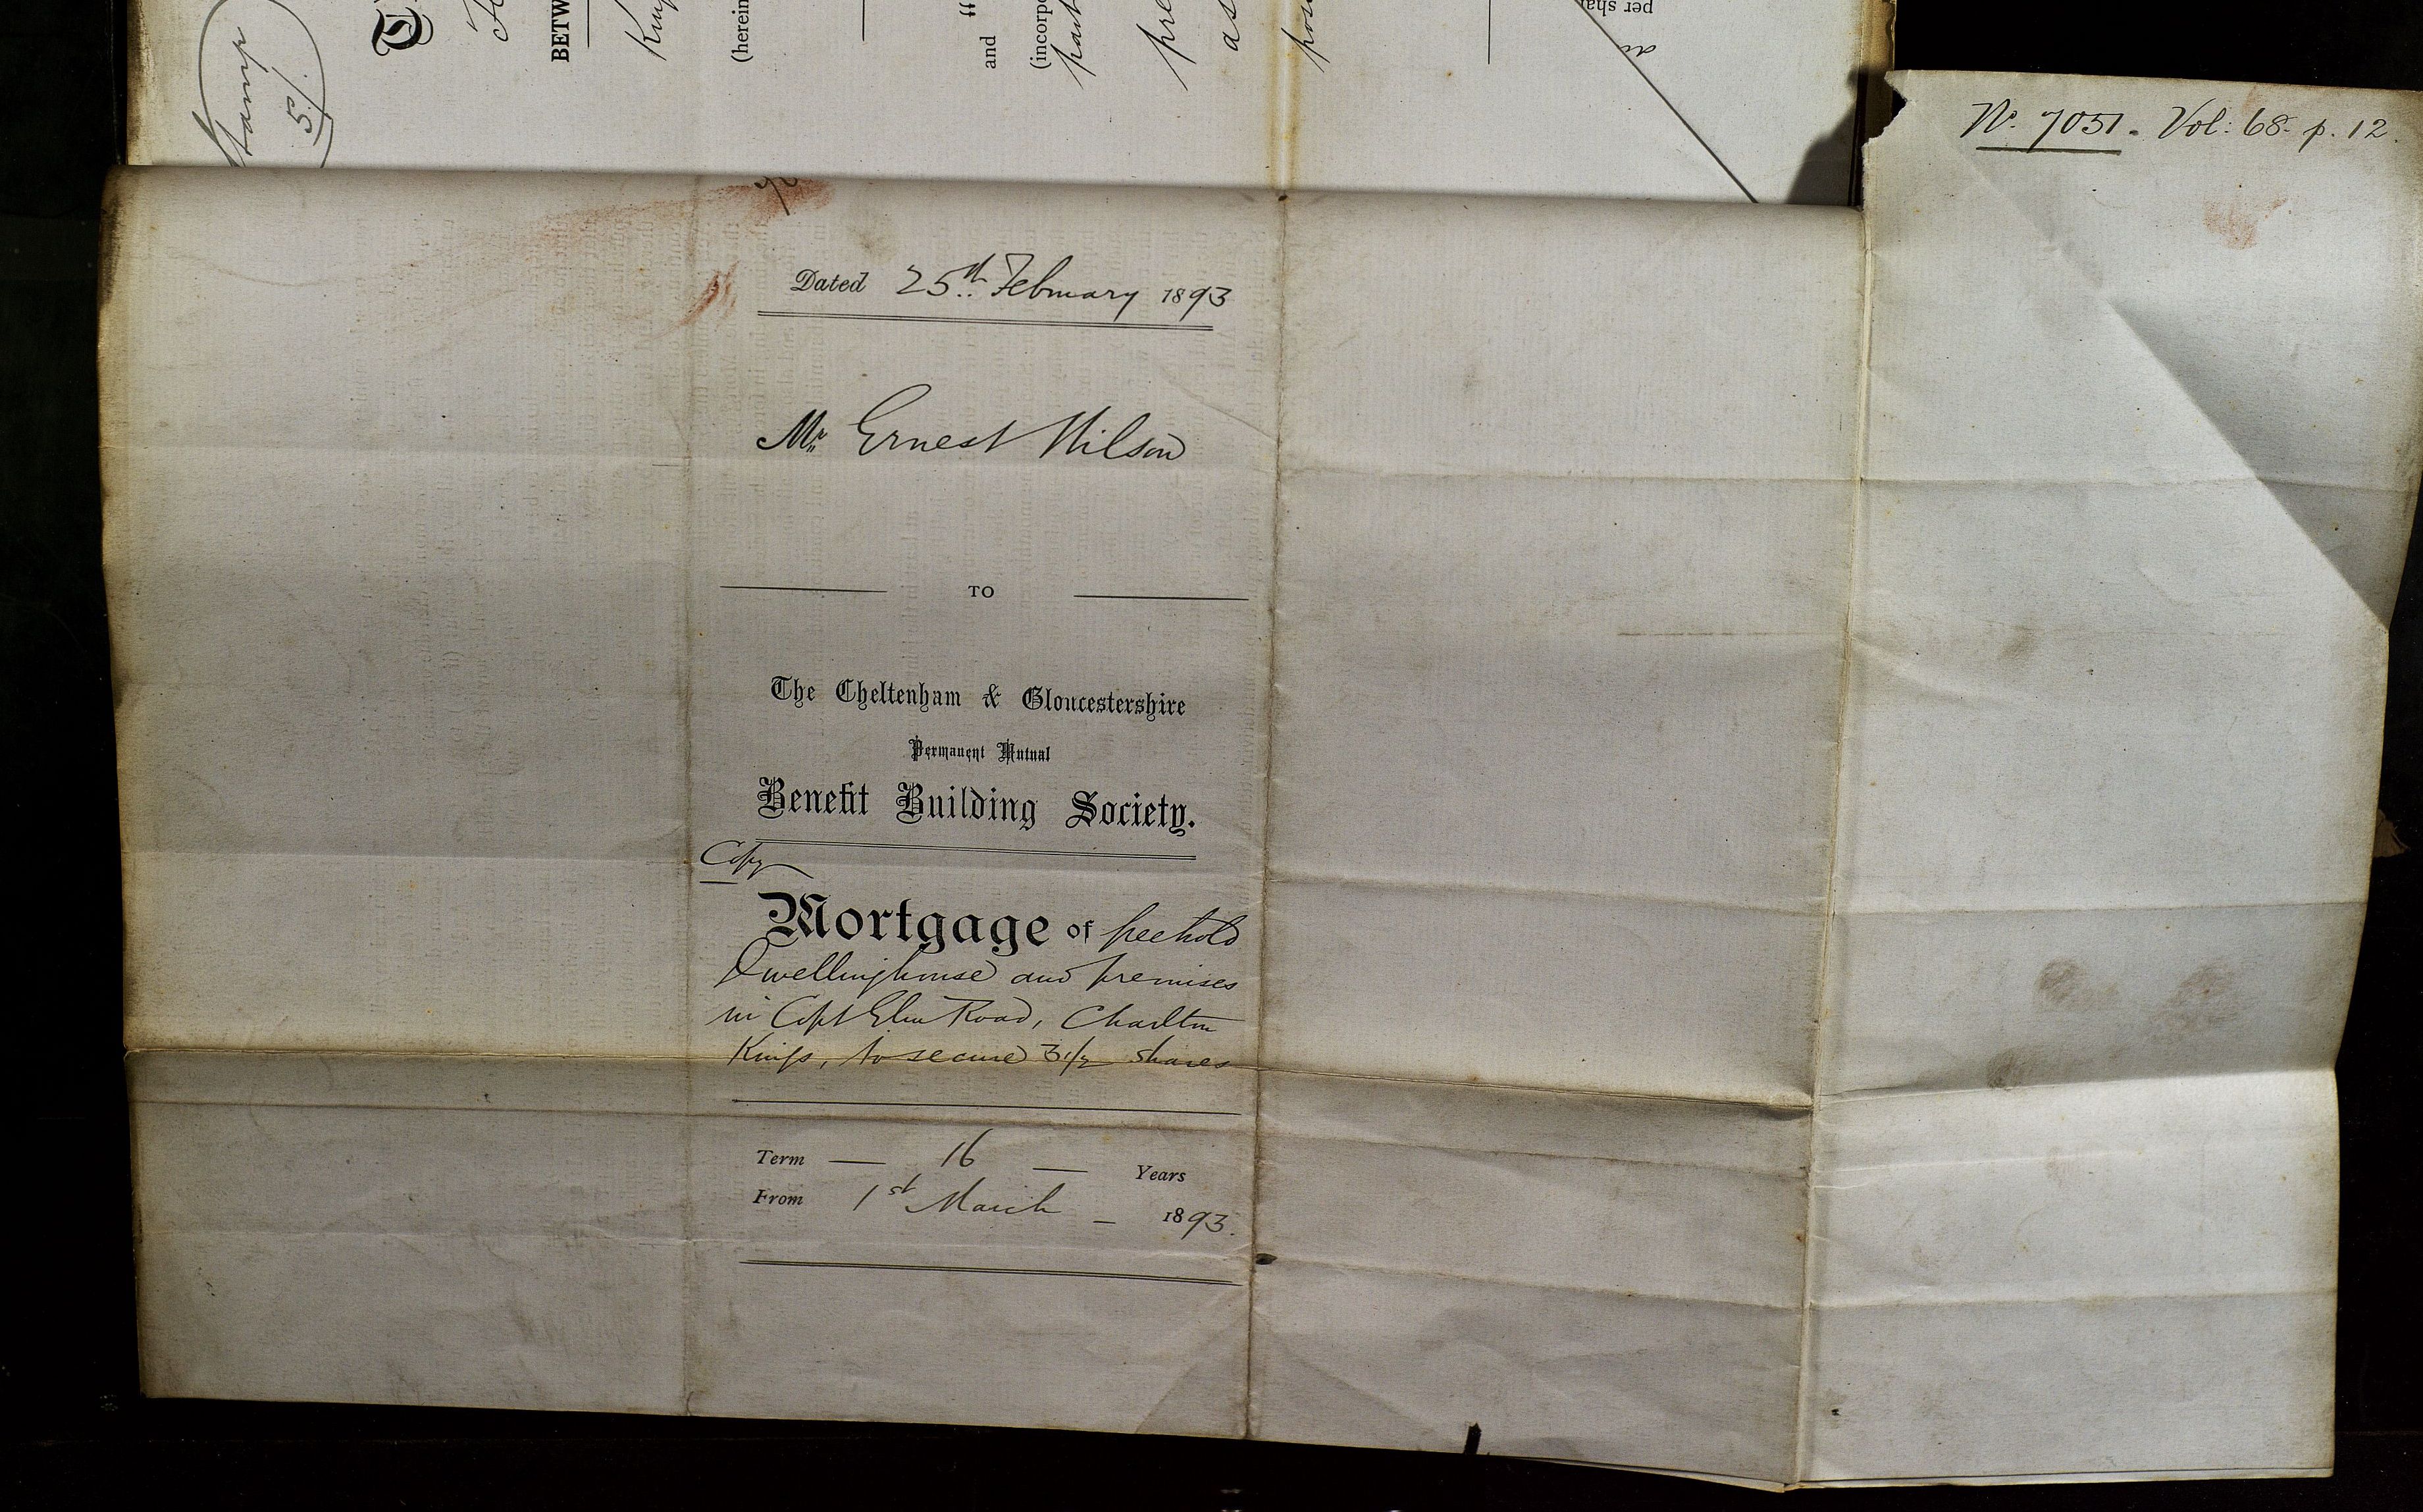 Stamp
5/.
BETW
(herein
and "
(incorpo
part
pre
as
per sha
Nº 7051. Vol: 68. p. 12.
Dated 25th February 1893
Mr Ernest Wilson
TO
The Cheltenham & Gloucestershire
Permanent Mutual
Benefit Building Society.
Copy
Mortgage of freehold
Dwellinghouse and premises
in Copt Elm Road, Charlton
Kings, to secure 3 1/2 shares
Term — 16 — Years
From 1st March — 1893.